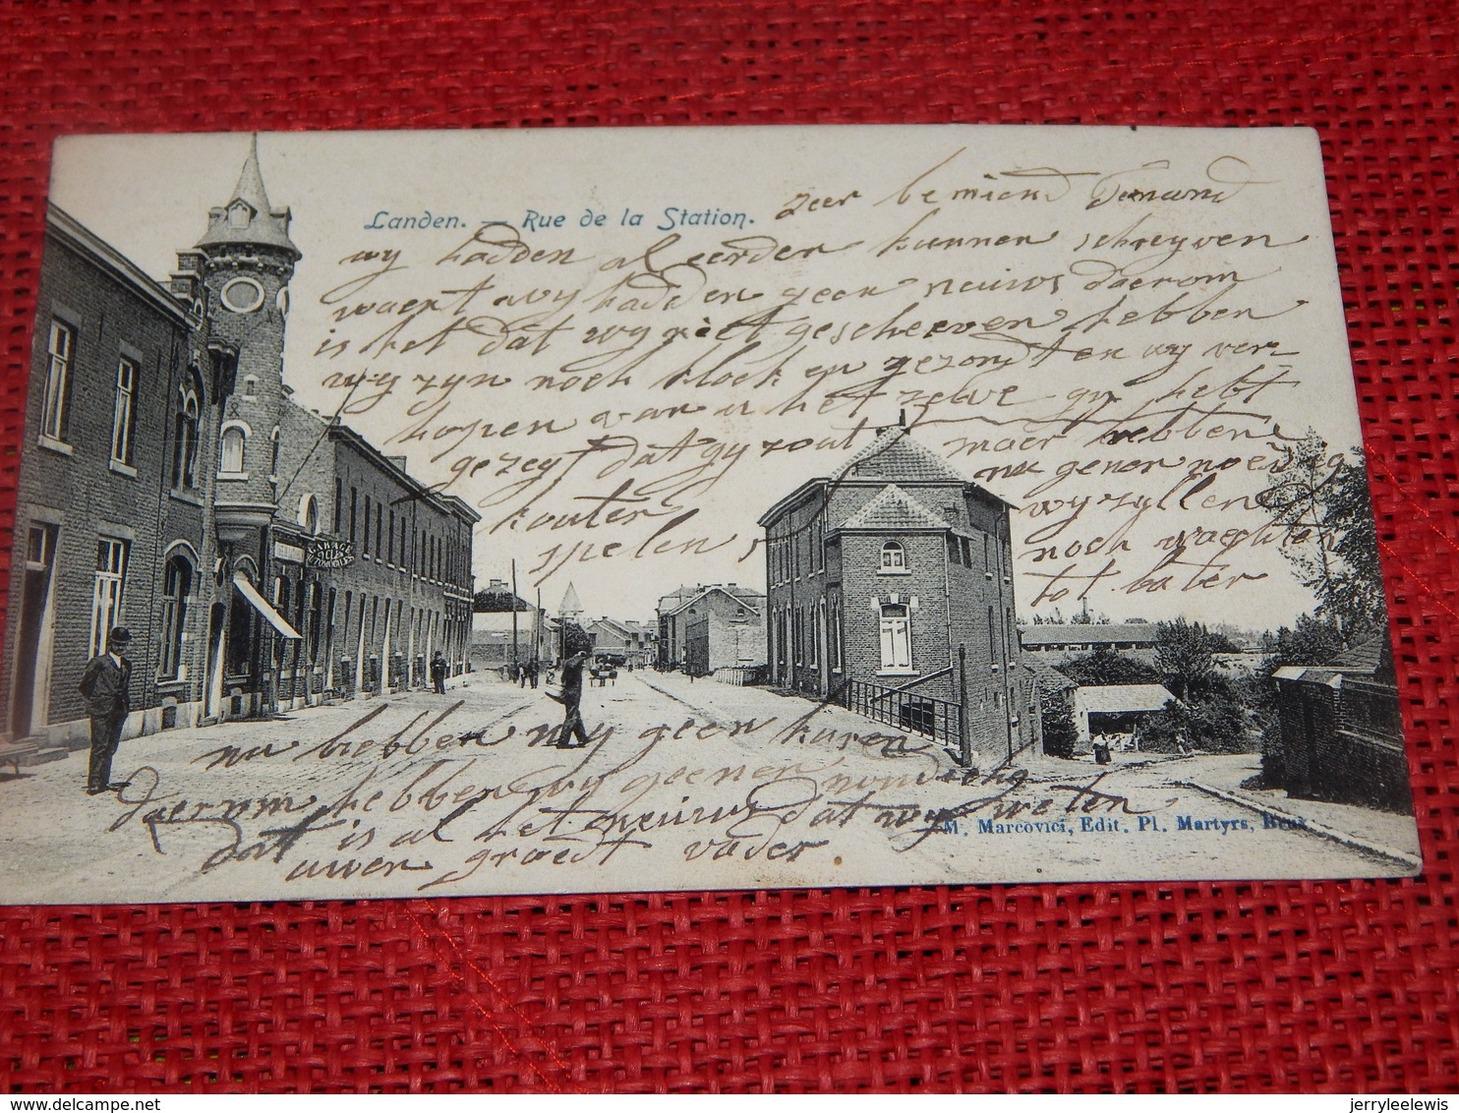 Landen. — Rue de la Station.
zeer bemind
wy hadden al eerder kunnen schryven
waert wy hadden geen nieuws daerom
is het dat wy niet geschreeven hebben
wy zyn noch kloek en gezond en wy ver
hopen van u het zelve gy hebt
gezegt dat gy zout maer hebben
kouter nu
spelen wy zyllen
noch wachten
tot later
nu hebben wy geen kuren
daerom hebben wy geenen noodig
dat is al het nieuws dat wy weten
uwen groedt vader
M. Marcovici, Edit. Pl. Martyrs, Brux
delcampe.net
jerryleelewis